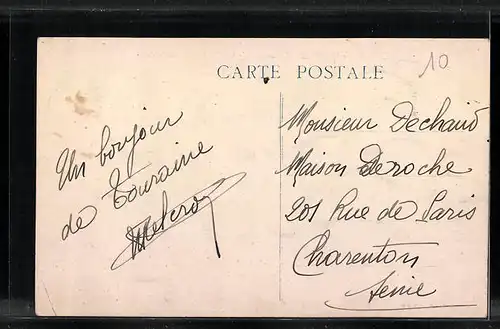 CARTE POSTALE
10
Un bonjour
de Touraine
Monsieur Dechaud
Maison Deroche
201 Rue de Paris
Charenton
Seine